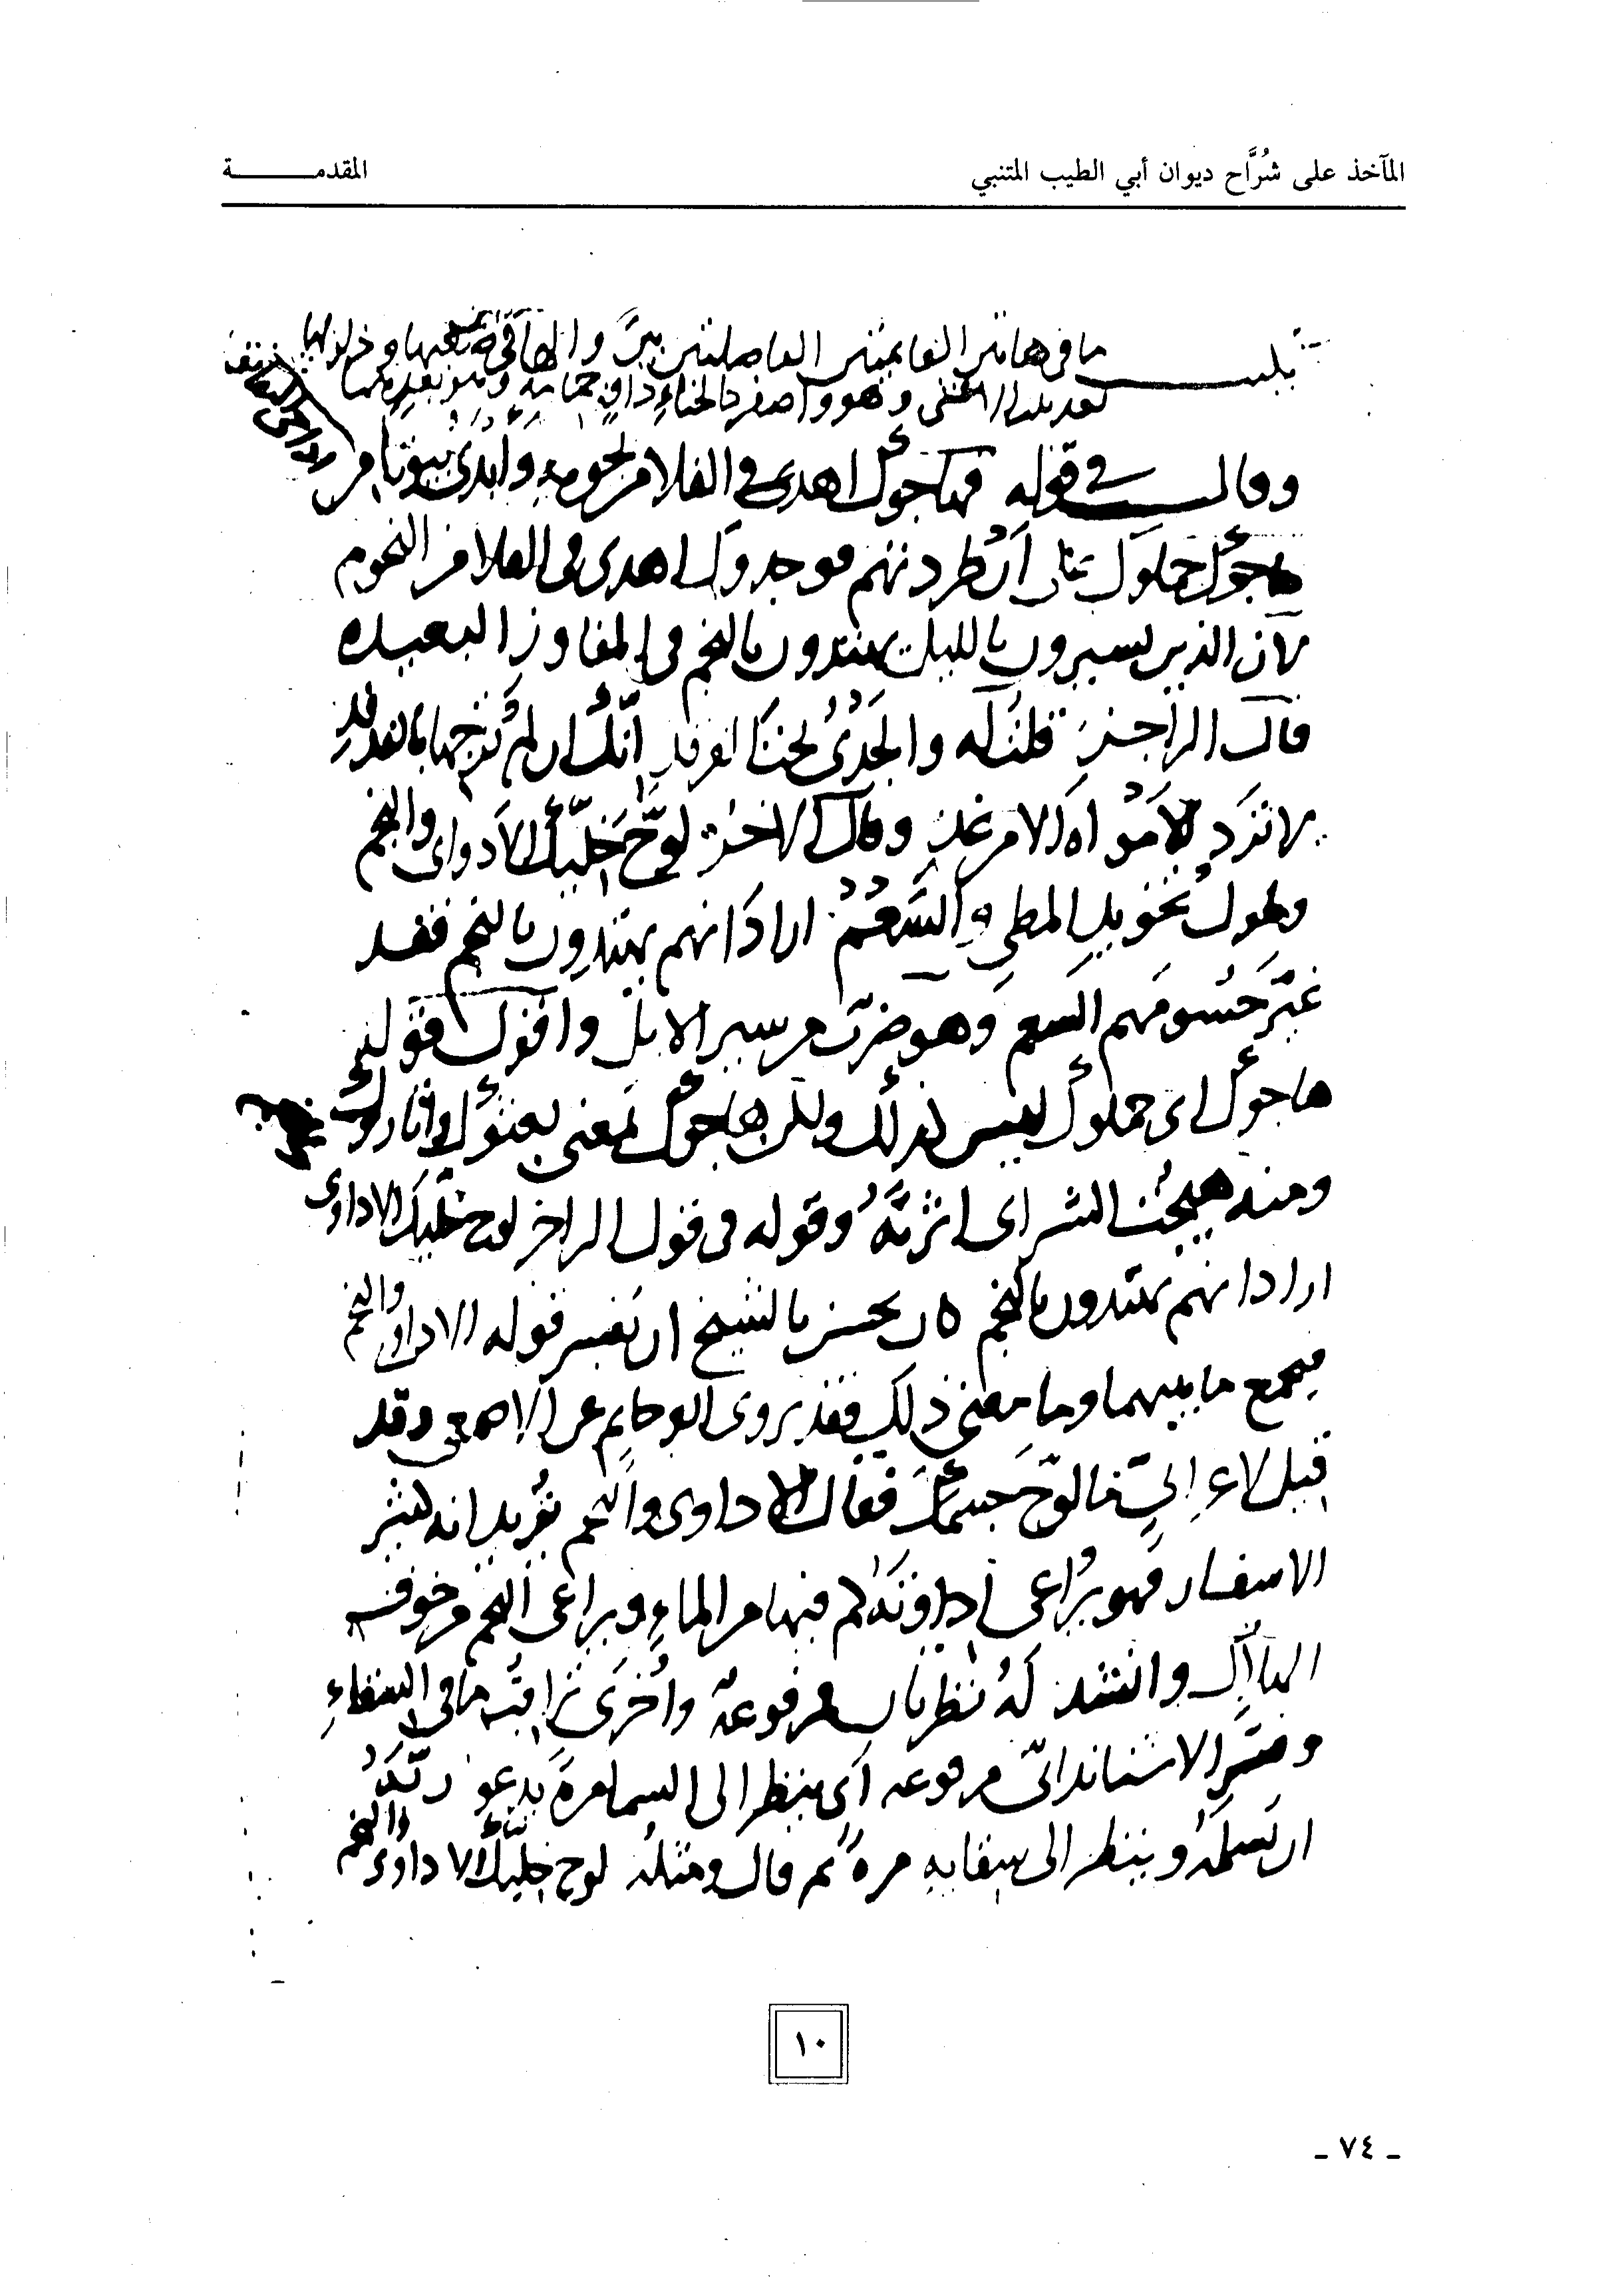 المآخذ على شُرَّاح ديوان أبي الطيب المتنبي
المقدمــــــــة
وقال في قوله فهاجوك اهدى في الفلا من نجومه وابدى بيوتا من
هاجوك حملوك على ان طردتهم فوجدوك اهدى في الفلا من النجوم
لان الذين يسيرون بالليل يهتدون بالنجم في المفاوز البعيده
قال الراجز قلت له والجدي تحت الفرقد انك ان لم تزجها بالفدفد
لا ترد وقال الاخر لوح خليك الاداوى والنجم
وطول تخويد المطي والسعم اراد انهم يهتدون بالنجم فقد
غير جسومهم السعم وهو ضرب من سير الابل واقول قوله
هاجوك اى حملوك ليس كذلك ولكن هاجوك بمعنى بعثوك واثاروك
ومنه هيجت الشر اى اثرته وقوله في قول الراجز لوح خليك الاداوى
اراد انهم يهتدون بالنجم كان يحسن بالشيخ ان يفسر قوله الاداوى والنجم
فيجمع ما بينهما وما معنى ذلك فقد روى ابو حاتم عن الاصمعي وقد
قيل لاعرابي ما لوح جسمك فقال الاداوى والنجم يريد انه يكثر
الاسفار فهو يراعى اداوته كم فيها من الماء ويراعى النجم من خوفه
الضلال وانشد له نظرتان فمرفوعة واخرى تراقب ما في السقاء
وفسر الاشنانداني مرفوعه اى ينظر الى السما مرة يدعو ربه
ان يسلمه وينظر الى سقايه مرة ثم قال ومثله لوح خليك الاداوى والنجم
١٠
ـ ٧٤ ـ